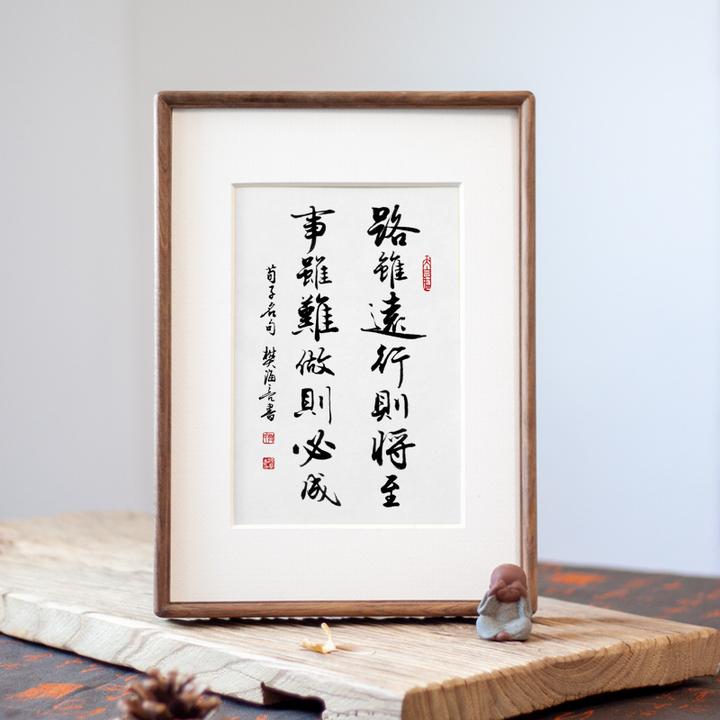 路雖遠行則將至
事雖難做則必成
荀子名句 樊海言書